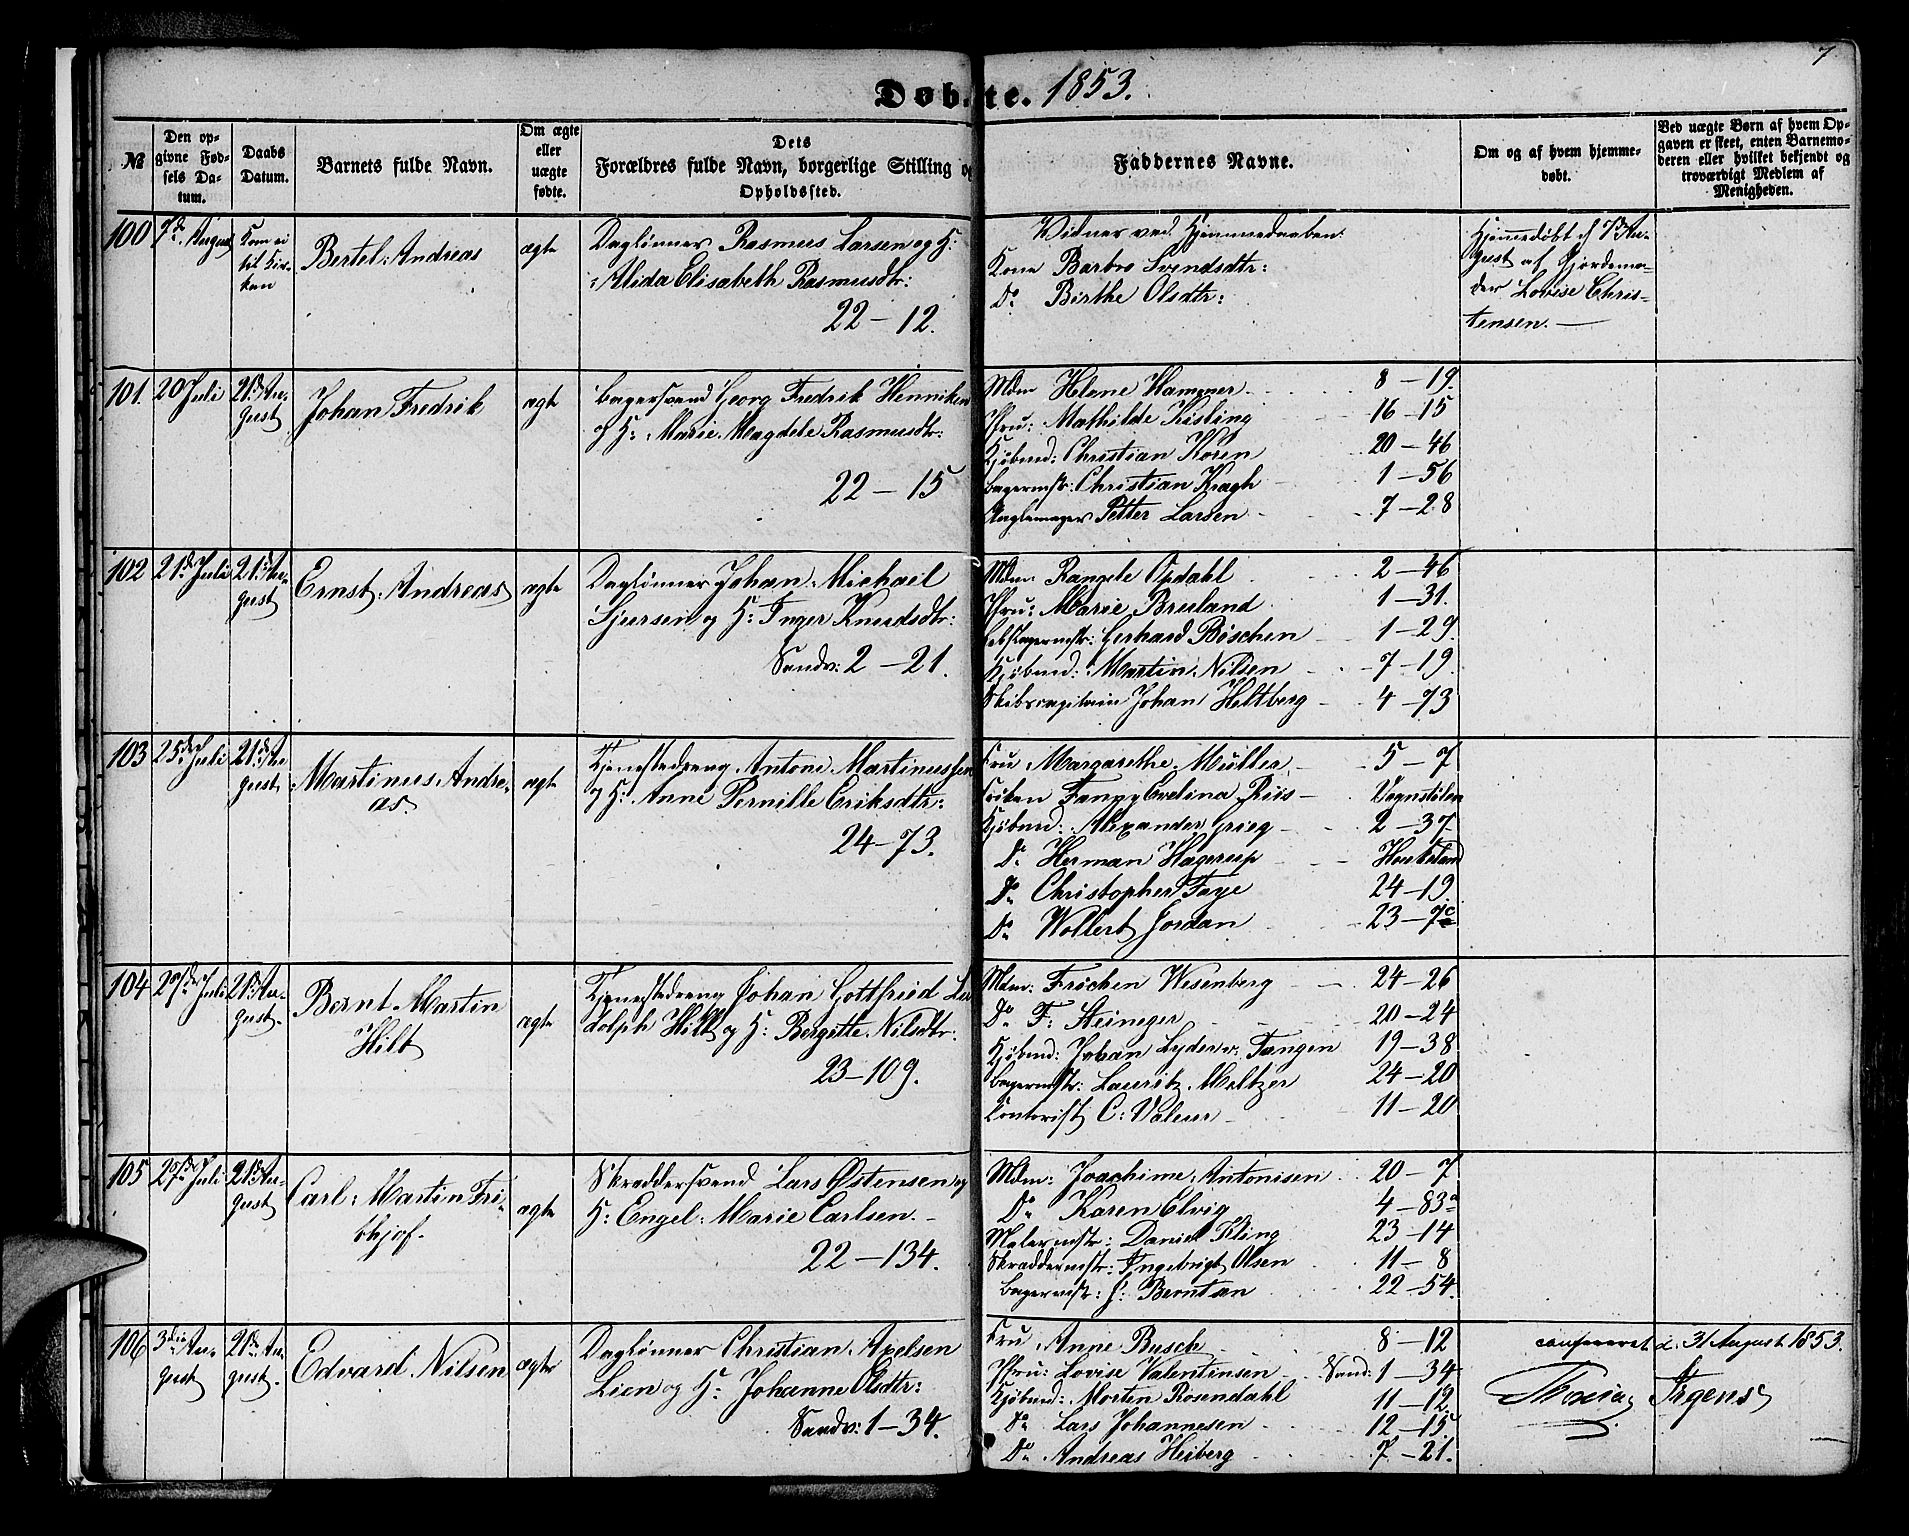 7
Døbte. 1853.
№
Den opgivne Fødsels Datum.
Daabs Datum.
Barnets fulde Navn.
Om ægte eller uægte fødte.
Dets Forældres fulde Navn, borgerlige Stilling og Opholdssted.
Faddernes Navne.
Om og af hvem hjemmedøbt.
Ved uægte Børn af hvem Opgaven er skeet, enten Barnemoderen eller hvilket bekjendt og troværdigt Medlem af Menigheden.
100
7de August
Kom ei til Kirken
Bertel Andreas
ægte
Daglønner Rasmus Larsen og H:
Alida Elisabeth Rasmusdtr:
22 – 12.
Vidner ved Hjemmedaaben:
Kone Barbro Svendsdtr:
Do Birthe Olsdtr:
Hjemmedøbt d 7de Au-
gust af Gjordemo-
der Lovise Chris-
tensen. —
101.
20 Juli
21de Au-
gust
Johan Fredrik
ægte
Bagersvend Georg Fredrik Henriksen
og H: Marie Magdele Rasmusdtr:
22 – 15
Mdm Helene Hammer 8 – 19.
Jfru: Mathilde Kisling 16 – 15
Kjøbmd: Christian Koren 20 – 46
Bagermstr: Christian Kragh 1 – 56
Petter Larsen 7 – 28
102
21de Juli
21de Au-
gust
Ernst Andreas
ægte
Daglønner Johan Michael
Sjursen og H: Inger Knudsdtr:
Sandv: 2 – 21.
Mdm Rangele Opdahl 2 – 46
Jfru: Marie Bruland 1 – 31.
Rebslagermstr: Gerhard Böschen 1 – 29
Kjøbmd: Martin Nilsen 7 – 19
Skibscapitain Johan Heltberg 4 – 73
103
25de Juli
21de Au-
gust
Martinus Andre-
as
ægte
Tjenestedreng Antoni Martinussen
og H: Anne Pernille Eriksdtr:
24 – 73.
Fru Margarethe Müller 5 – 7
Frøken Fanny Evelina Riis Vognstølen
Kjøbmd: Alexander Grieg 2 – 37
Do Herman Hagerup Haukeland
Do Christopher Faye 24 – 19
Do Wollert Jordan 23 – 7c
104
27de Juli
21de Au-
gust.
Bernt Martin
Hilt
ægte
Tjenestedreng Johan Gottfried Lu
dolph Hilt og H: Bergitte Nilsdtr:
23 – 109.
Mdm: Frichen Wesenberg 24 – 26
Do F: Steineger 20 – 24
Kjøbmd: Johan Lyder v: Tangen 19 – 38
Bagermstr: Lauritz Meltzer 24 – 20
Contorist C: Valeur 11 – 20
105
27de Juli
21de Au-
gust
Carl Martin Fri-
thjof.
ægte
Skræddersvend Lars Østensen og
H: Engel Marie Carlsen. –
22 – 134.
Mdm: Joachime Antonisen 20 – 7
Do Karen Elvig 4 – 83a
Malermstr: Daniel Kling 23 – 14
Skræddermstr: Ingebrigt Olsen 11 – 8
Bagermstr: J: Berntsen 22 – 54.
106
3die Au-
gust
21de Au-
gust.
Edvard Nilsen
ægte
Daglønner Christian Axelsen
Lien og H: Johanne Olsdtr:
Sandv: 1 – 34.
Fru Anne Busch 8 – 12
Jfru: Lovise Valentinsen Sand: 1 – 34
Kjøbmd: Morten Rosendahl 11 – 12.
Do Lars Johannesen 12 – 15
Do Andreas Heiberg 7 – 21.
confereret d. 31 August 1853.
Irgens